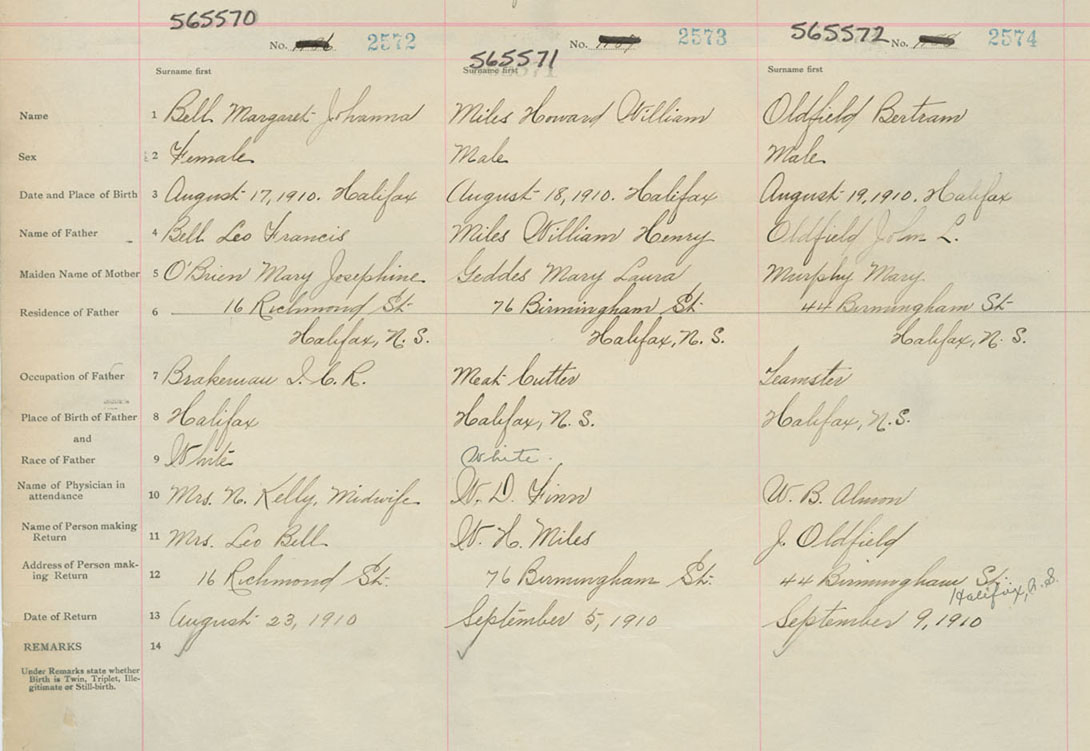 565570 565571 565572
No. 2572 No. 2573 No. 2574
Surname first Surname first Surname first
Name 1 Bell Margaret Johanna Miles Howard William Oldfield Bertram
Sex 2 Female Male Male
Date and Place of Birth 3 August 17, 1910. Halifax August 18, 1910. Halifax August 19, 1910. Halifax
Name of Father 4 Bell Leo Francis Miles William Henry Oldfield John L.
Maiden Name of Mother 5 O'Brien Mary Josephine Geddes Mary Laura Murphy Mary
Residence of Father 6 16 Richmond St 76 Birmingham St 44 Birmingham St
Halifax, N. S. Halifax, N. S. Halifax, N. S.
Occupation of Father 7 Brakeman I. C. R. Meat Cutter Teamster
Place of Birth of Father 8 Halifax Halifax, N. S. Halifax, N. S.
and
Race of Father 9 White White.
Name of Physician in
attendance 10 Mrs. N. Kelly, Midwife W. D. Finn W. B. Almon
Name of Person making
Return 11 Mrs. Leo Bell W. H. Miles J. Oldfield
Address of Person mak-
ing Return 12 16 Richmond St. 76 Birmingham St. 44 Birmingham St.
Halifax, N. S.
Date of Return 13 August 23, 1910 September 5, 1910 September 9, 1910
REMARKS 14
Under Remarks state whether
Birth is Twin, Triplet, Ille-
gitimate or Still-birth.